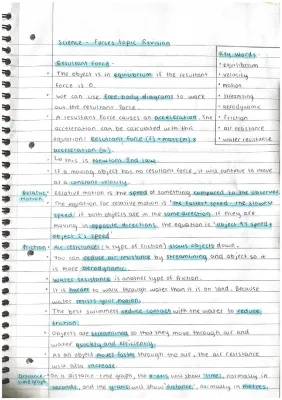 Science - Forces Topic Revision
Key Words
• equilibrium
• velocity
• motion
• streamlining
• aerodynamic
• friction
• air resistance
• water resistance
Resultant Force -
• The object is in equilibrium if the resultant
force is 0.
• We can use free body diagrams to work
out the resultant force.
• A resultant force causes an acceleration. The
acceleration can be calculated with this
equation: Resultant force (F) = mass(m) x
acceleration (a).
↳ This is Newtons 2nd law.
• If a moving object has no resultant force, it will continue to move
at a constant velocity.
Relative Motion
• Relative motion is the speed of something compared to the observer.
• The equation for relative motion is 'the fastest speed - the slowest
speed' if both objects are in the same direction. If they are
moving in opposite directions, the equation is 'object 1's speed +
object 2's speed'
Friction
• Air resistance (a type of friction) slows objects down.
• You can reduce air resistance by streamlining and object so it
is more aerodynamic.
• Water resistance is another type of friction.
• It is harder to walk through water than it is on land, because
water resists your motion.
• The best swimmers reduce contact with the water to reduce
friction.
• Objects are streamlined so that they move through air and
water quickly and efficiently.
• As an object moves faster through the air, the air resistance
will also increase.
Distance-time graph
• On a distance-time graph, the x-axis will show 'time', normally in
seconds, and the y-axis will show 'distance', normally in metres.